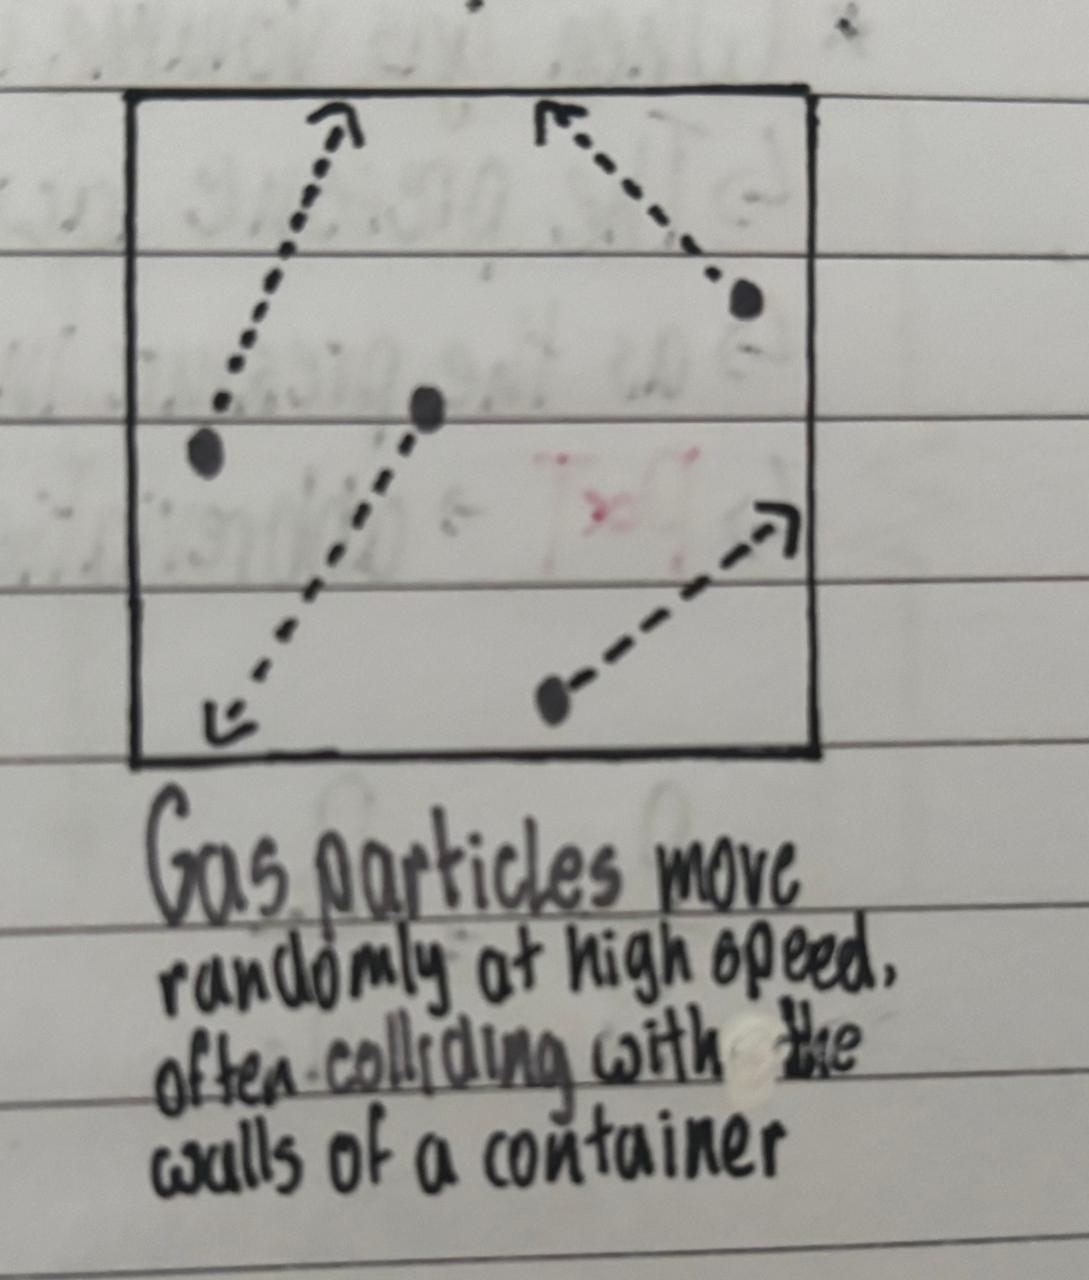 Gas particles move
randomly at high speed,
often colliding with the
walls of a container